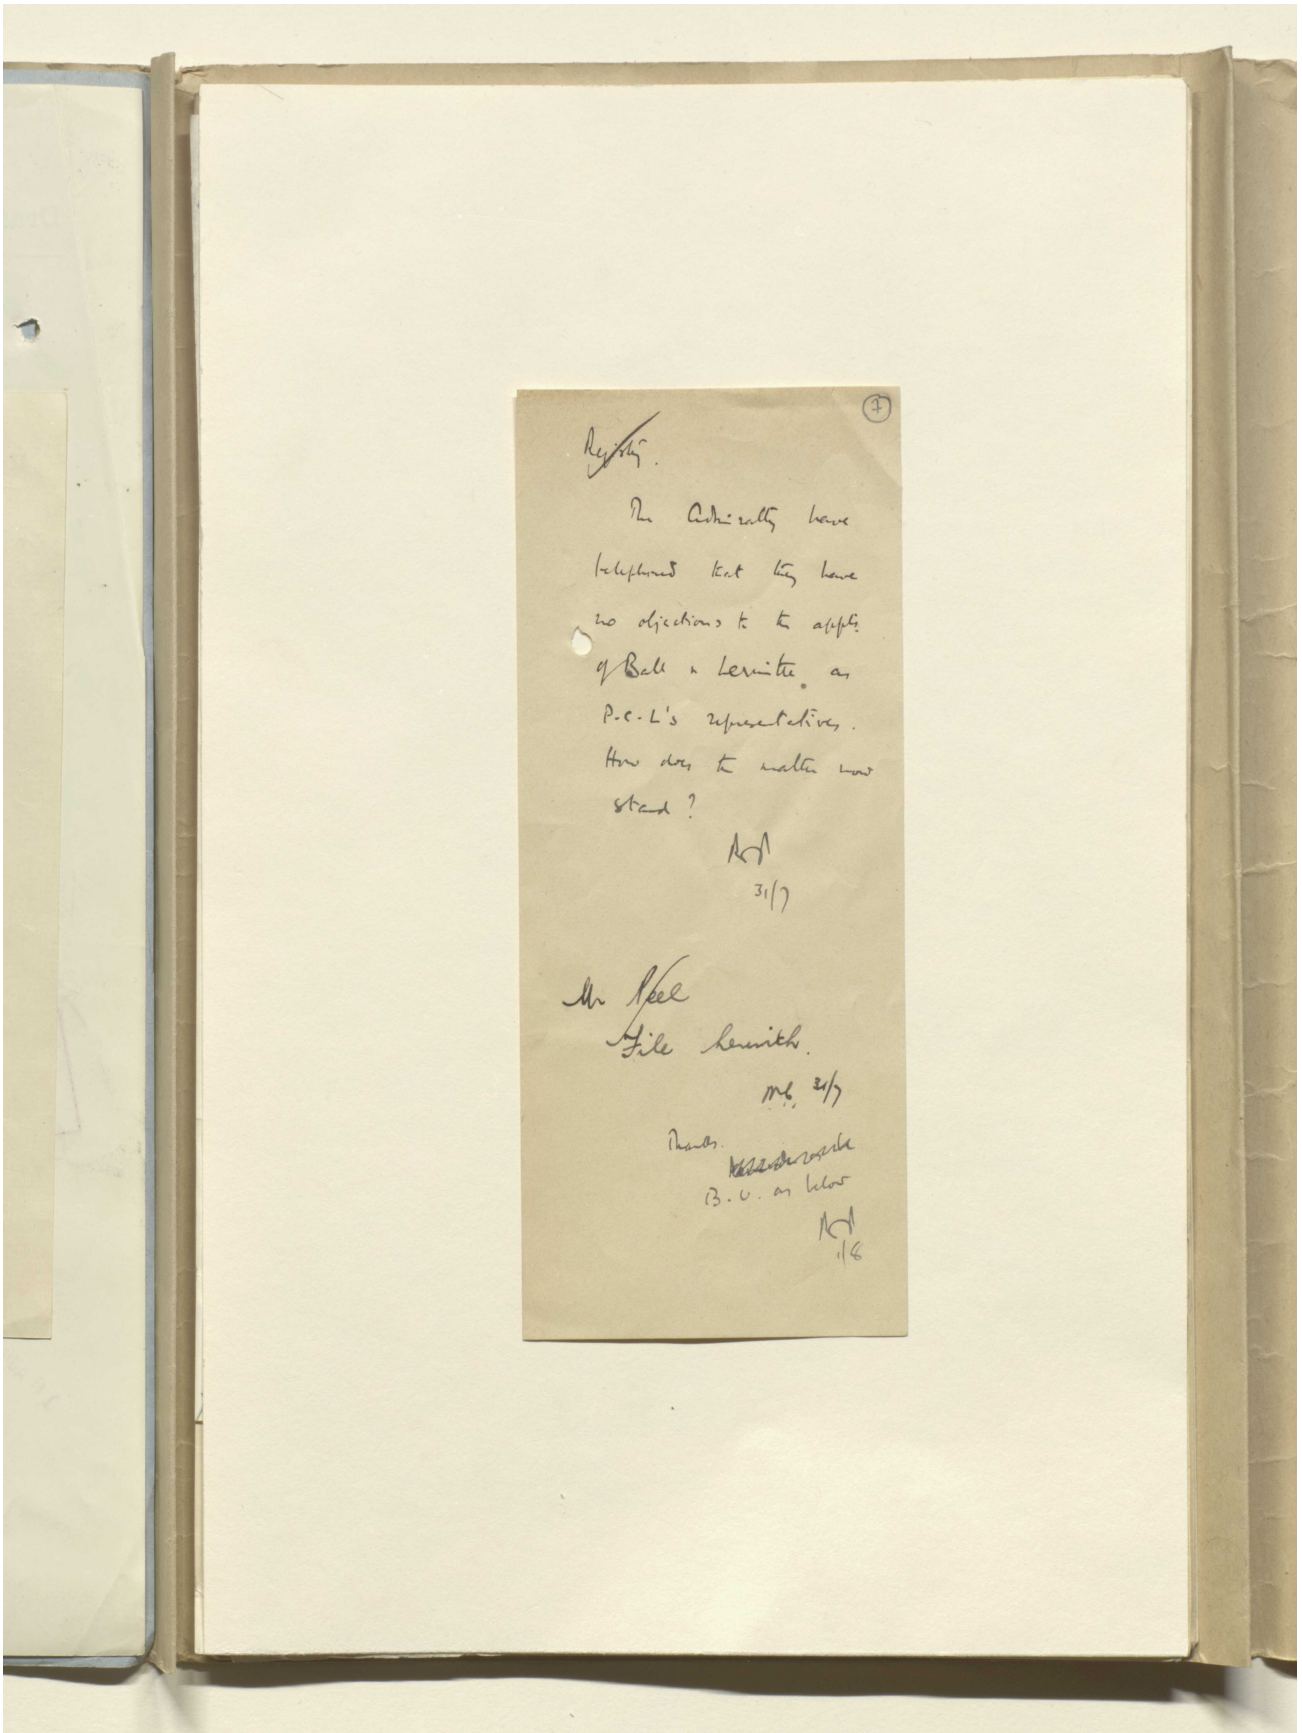 7
Registry.
The Admiralty have
telephoned that they have
no objections to the appts.
of Ball & Lermitte as
P.C.L's representatives.
How does the matter now
stand?
31/7
Mr Peel
File herewith.
31/7
Thanks.
B.U. as below
1/8